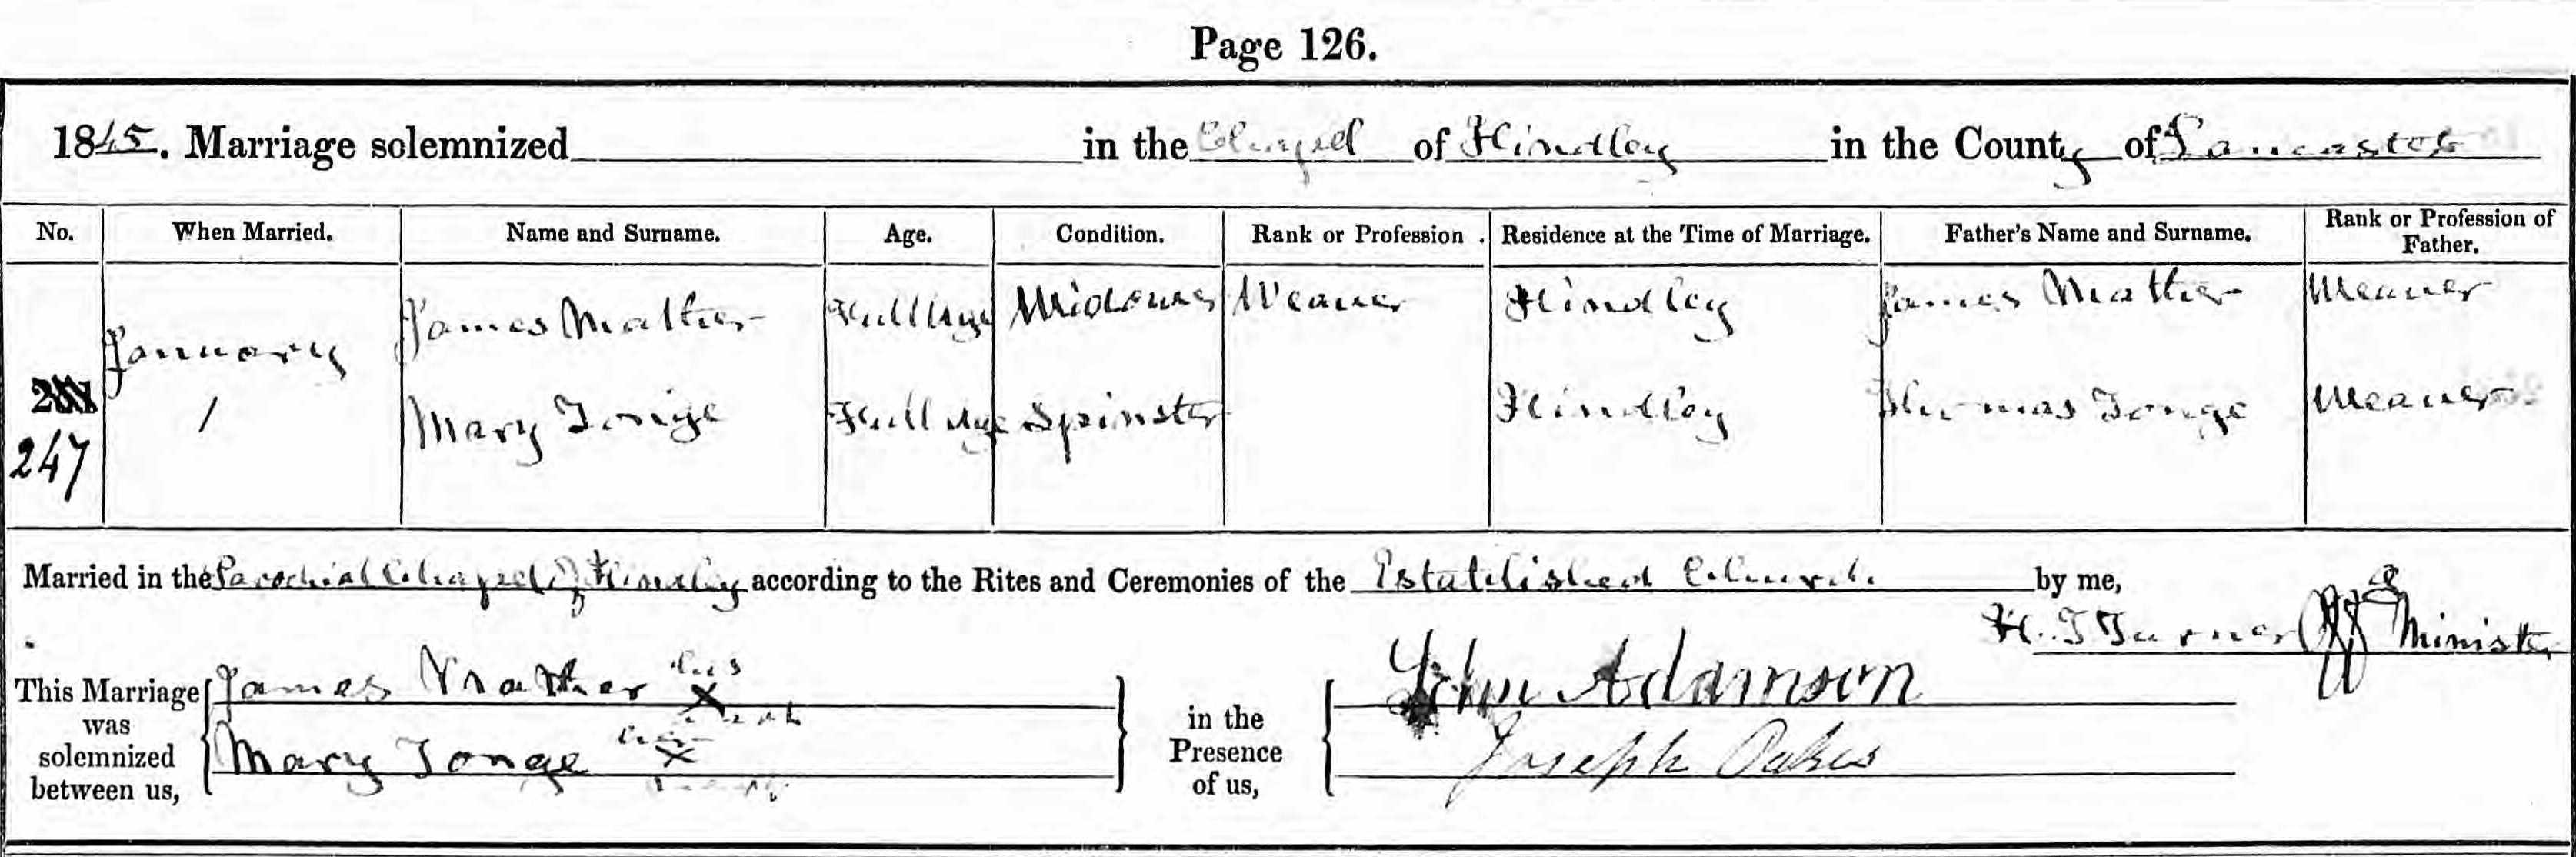 Page 126.
1845. Marriage solemnized in the Chapel of Hindley in the County of Lancaster
No. When Married. Name and Surname. Age. Condition. Rank or Profession. Residence at the Time of Marriage. Father's Name and Surname. Rank or Profession of Father.
247 January 1 James Mather Full Age Widower Weaver Hindley James Mather Weaver
Mary Tonge Full Age Spinster Hindley Thomas Tonge Weaver
Married in the Parochial Chapel of Hindley according to the Rites and Ceremonies of the Established Church by me,
H. T. Turner Minister
This Marriage was solemnized between us, James Mather his X mark in the Presence of us, John Adamson
Mary Tonge her X mark Joseph Oakes